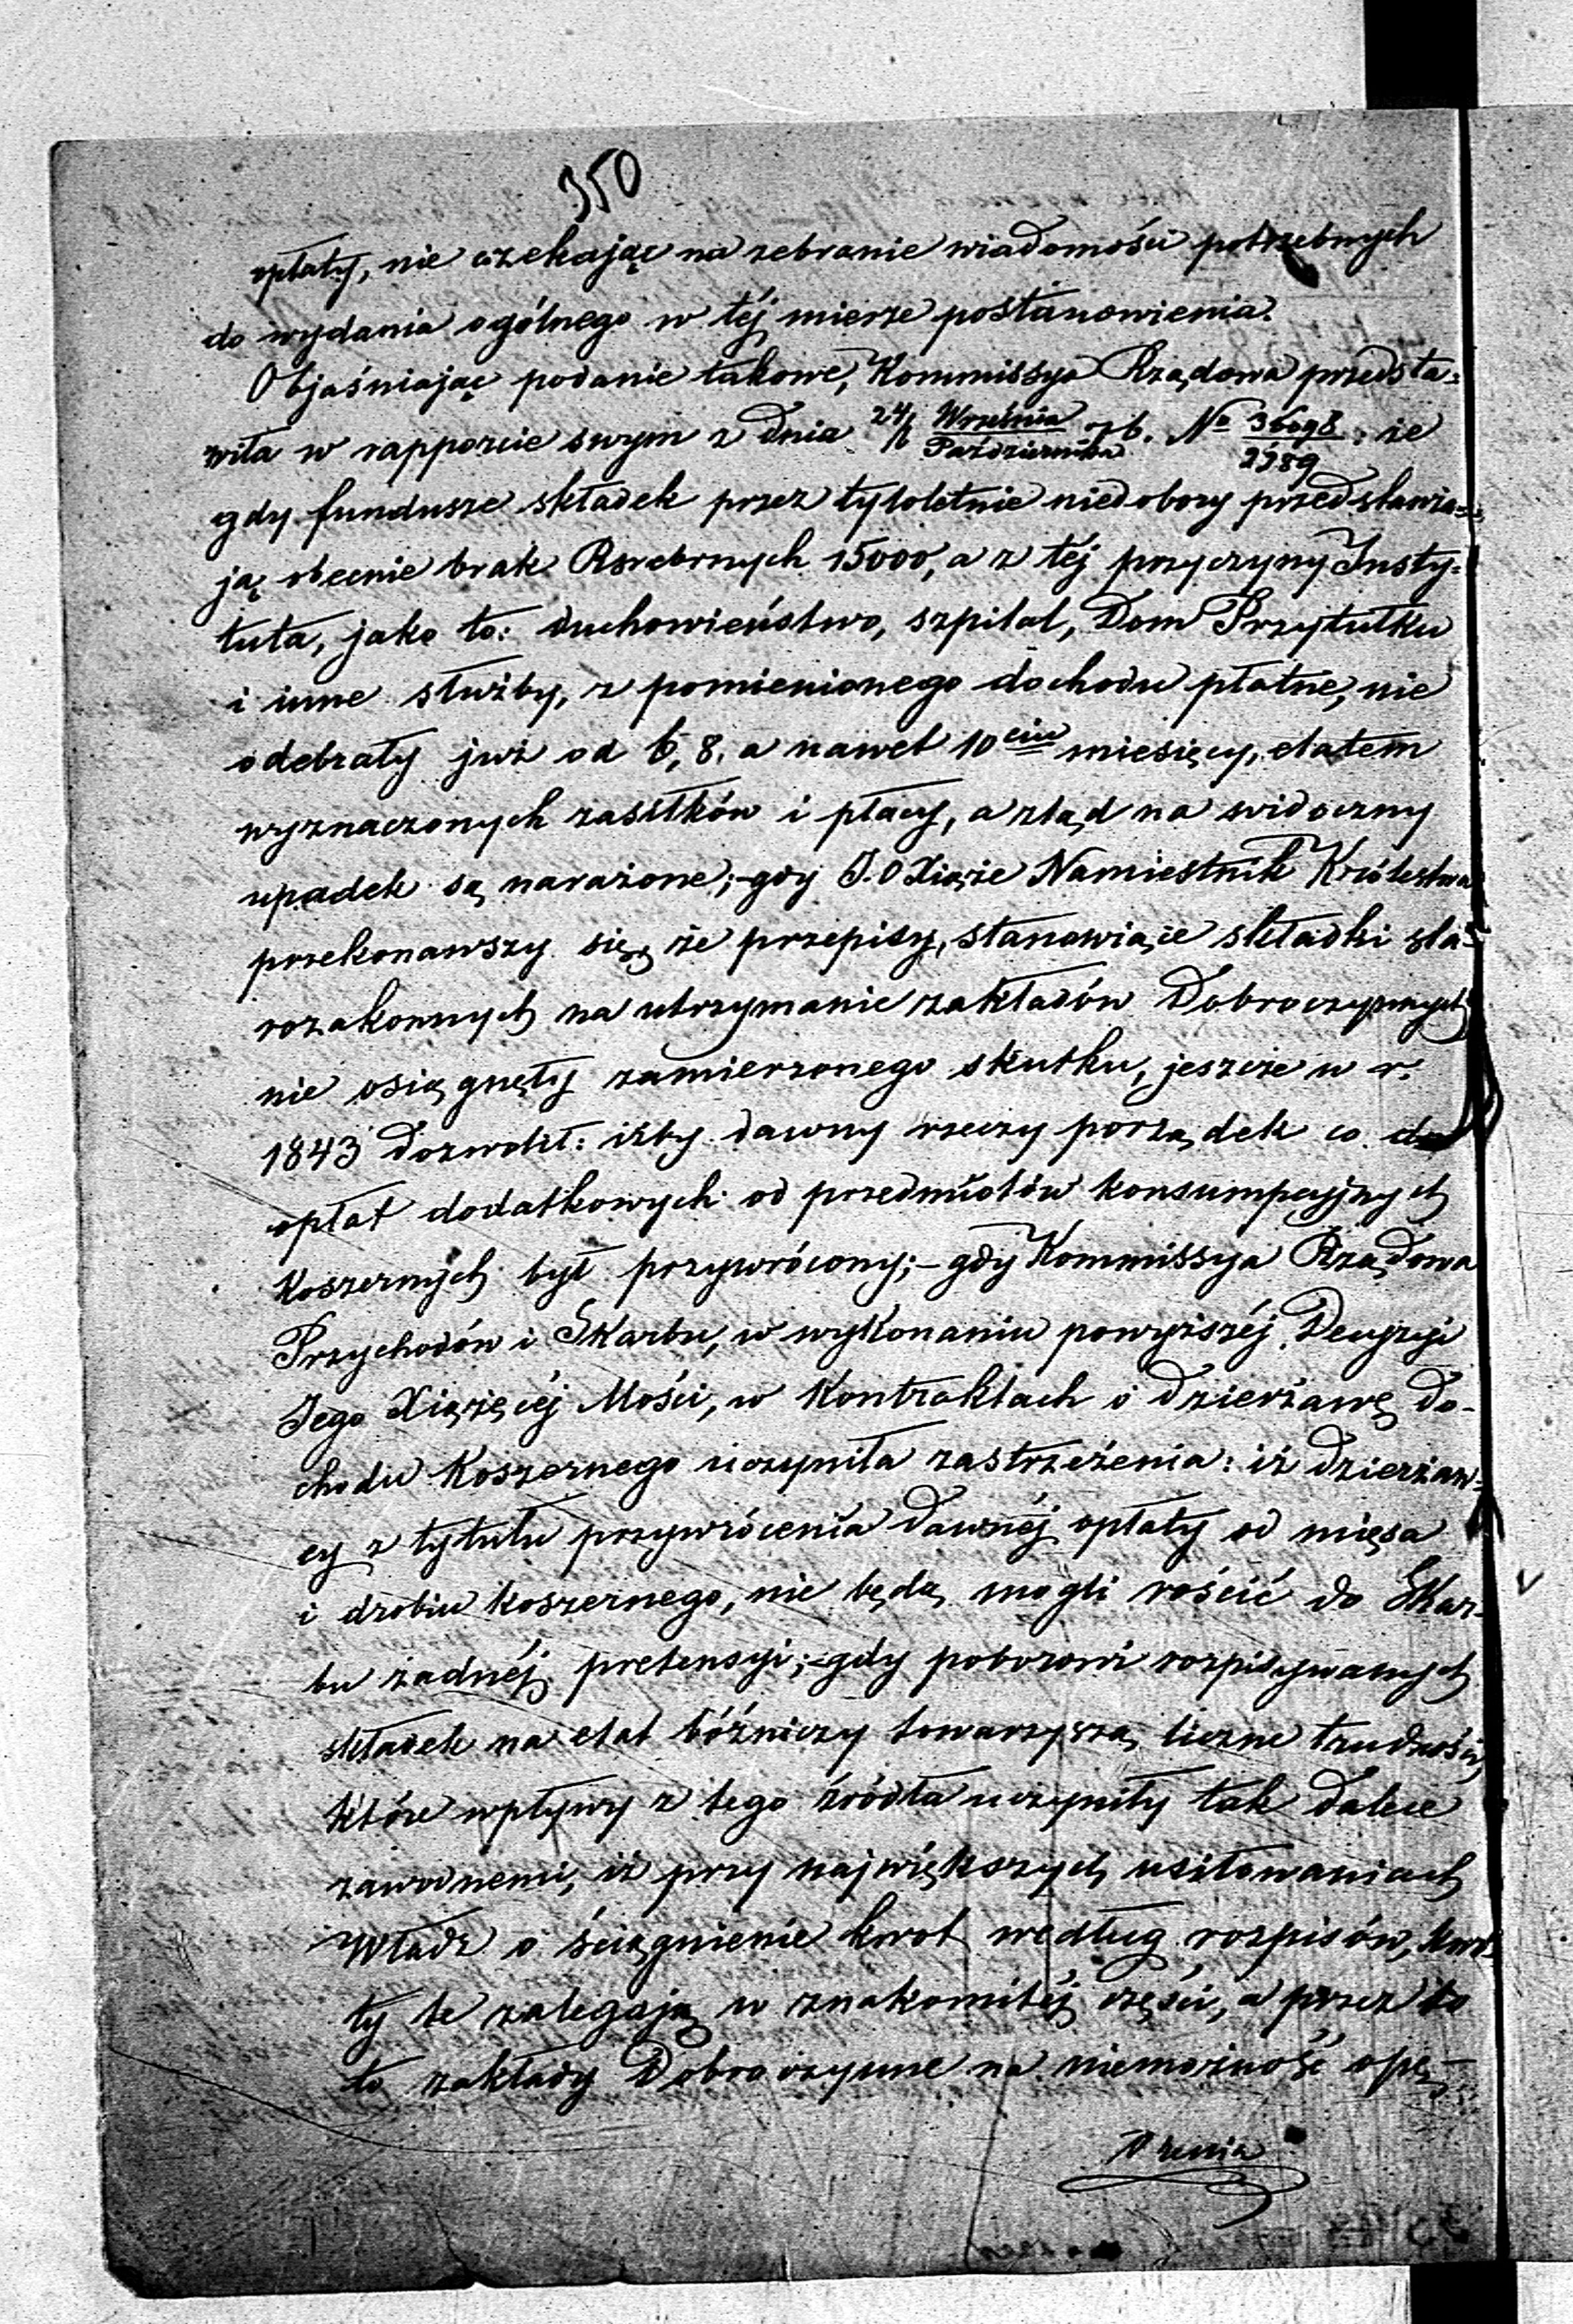 350
opłaty, nie czekając na zebranie wiadomości potrzebnych
do wydania ogólnego w téj mierze postanowienia.
Objaśniając podanie takowe, Kommissya Rządowa przedsta=
wiła w rapporcie swym z dnia 24/6 Września/Października rb. No 36098/2289: że
gdy fundusze składek przez tyloletnie niedobory przedstawia=
ją obecnie brak Rsrebrnych 15000, a z téj przyczyny Insty=
tuta, jako to: duchowieństwo, szpital, Dom Przytułku
i inne służby, z pomienionego dochodu płatne, nie
odebrały już od 6, 8, a nawet 10ciu miesięcy, etatem
wyznaczonych zasiłków i płacy, a ztąd na widoczny
upadek są narażone; - gdy J.O Xiąże Namiestnik Królestwa
przekonawszy się, że przepisy, stanowiące składki sta=
rozakonnych na utrzymanie zakładów Dobroczynnych
nie osiągnęły zamierzonego skutku, jeszcze w r.
1843 dozwolił: iżby dawny rzeczy porządek co do
opłat dodatkowych od przedmiotów konsumpcyjnych
koszernych był przywrócony; - gdy Kommissya Rządowa
Przychodów i Skarbu, w wykonaniu powyższéj Decyzyi
Jego Xiążęcéj Mości, w kontraktach o dzierżawę do-
chodu koszernego uczyniła zastrzeżenia: iż dzierżaw=
cy z tytułu przywrócenia dawnéj opłaty od mięsa
i drobiu koszernego, nie będą mogli rościć do Skar-
bu żadnéj pretensyi; - gdy poborowi rozpisywanych
składek na etat bóżniczy towarzyszą liczne trudności,
które wpływy z tego źródła uczyniły tak dalece
zawodnemi, iż przy największych usiłowaniach
Władz o ściągnienie kwot według rozpisów, kwo=
ty te zalegają w znakomitéj części, a przez to
to zakłady Dobroczynne na niemożność opę-
dzenia